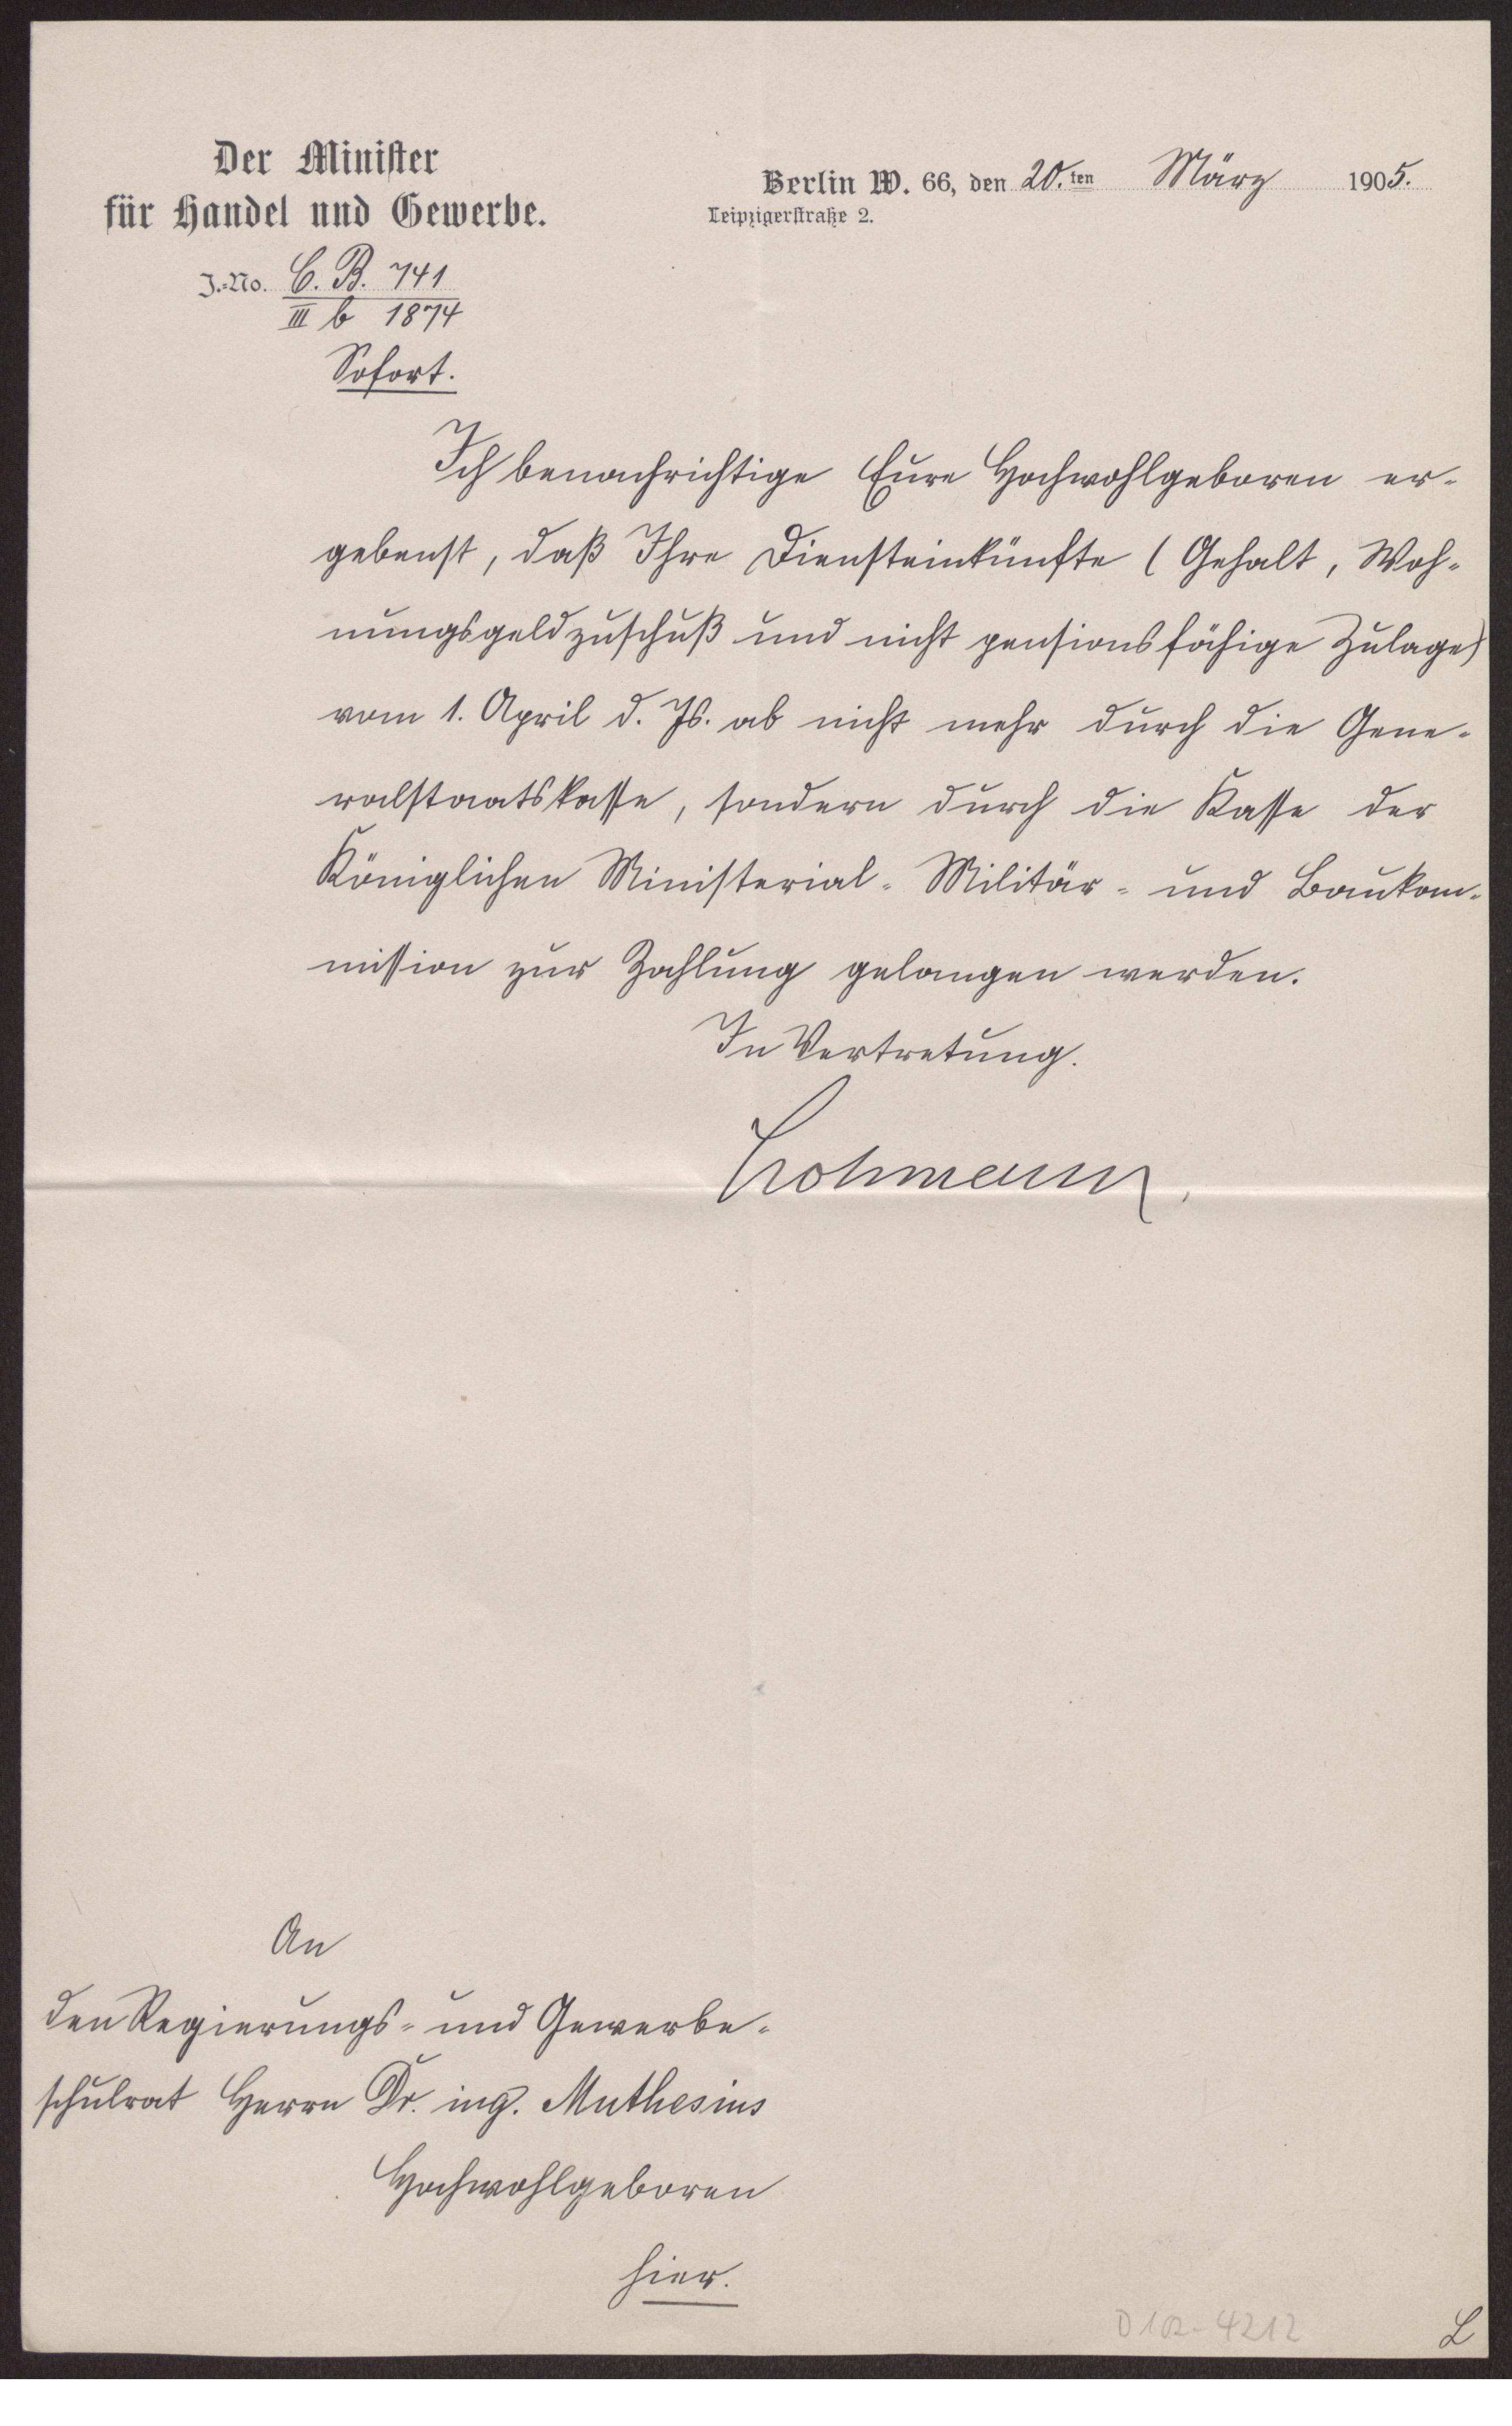 Der Minister
für Handel und Gewerbe.
Berlin W. 66, den 20.ten März 1905.
Leipzigerstraße 2.
J.-No. C. B. 741
III b 1874
Sofort.
Ich benachrichtige Eure Hochwohlgeboren er-
gebenst, daß Ihre Diensteinkünfte (Gehalt, Woh-
nungsgeldzuschuß und nicht pensionsfähige Zulage)
vom 1. April d. Js. ab nicht mehr durch die Gene-
ralstaatskasse, sondern durch die Kasse der
Königlichen Ministerial- Militär- und Baukom-
mission zur Zahlung gelangen werden.
In Vertretung.
Lohmann.
An
den Regierungs- und Gewerbe-
schulrat Herrn Dr. ing. Muthesius
Hochwohlgeboren
hier.
D 102-4212
L